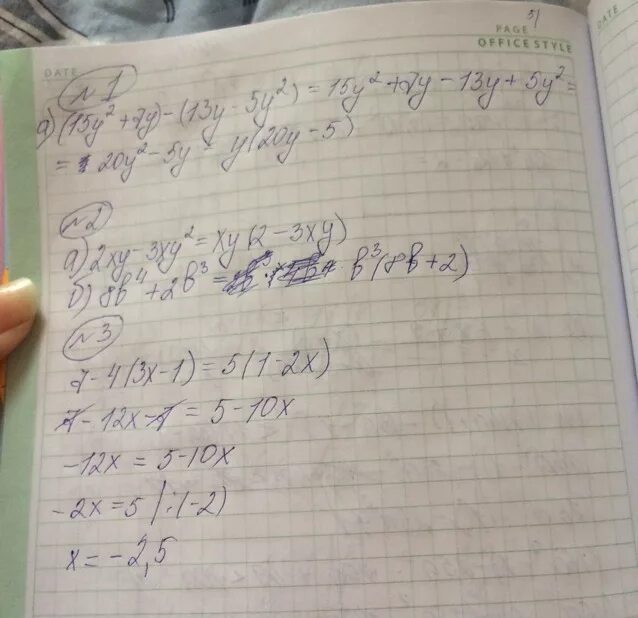 5/
PAGE
OFFICE STYLE
DATE
DATE
№1
а) (15y² + 7y) - (13y - 5y²) = 15y² + 7y - 13y + 5y² =
= 20y² - 5y = y(20y - 5)
№2
а) 2xy - 3xy² = xy(2 - 3xy)
б) 8b⁴ + 2b³ = b³(8b + 2)
№3
7 - 4(3x - 1) = 5(1 - 2x)
7 - 12x - 7 = 5 - 10x
-12x = 5 - 10x
-2x = 5 | :(-2)
x = -2,5